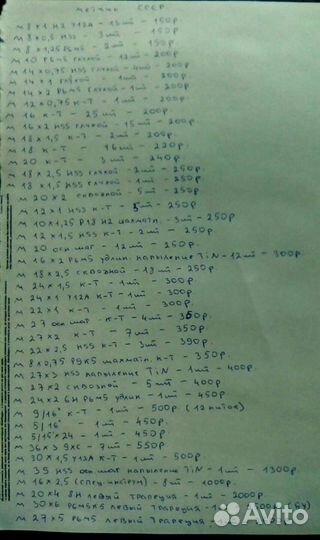 метчики СССР
М 8х1 Н2 У12А - 15шт - 150р
М 8х0,5 HSS - 3шт - 150р
М 8х1,25 Р6М5 - 2шт - 150р
М 10 Р6М5 глухой - 12шт - 200р
М 14х0,75 HSS глухой - 4шт - 200р
М 14х1 глухой - 1шт - 200р
М 14х2 Р6М5 глухой - 1шт - 200р
М 12х0,75 К-Т - 1шт - 200р
М 16 К-Т - 25шт - 200р
М 16х2 HSS глухой - 15шт - 200р
М 18х1,5 К-Т - 2шт - 200р
М 18 К-Т - 16шт - 220р.
М 20 К-Т - 3шт - 240р
М 18х2,5 HSS глухой - 2шт - 250р.
М 18х1,5 HSS глухой - 1шт - 250р
М 20х2 сквозной - 5шт - 250р
М 12х1 HSS К-Т - 5шт - 250р
М 10х1,25 Р18 Н2 шахматн. - 3шт - 250р
М 12х1,5 HSS К-Т - 2шт - 250р
М 20 осн шаг - 12шт - 250р.
М 16х2 Р6М5 удлин. напыление TiN - 12шт - 300р.
М 18х2,5 сквозной - 19шт - 250р
М 24х1,5 К-Т - 1шт - 300р
М 24х1 У12А К-Т - 1шт - 300р
М 22х1 К-Т - 1шт - 300р
М 27 осн шаг К-Т - 4шт - 350р.
М 27х2 К-Т - 7шт - 350р
М 22х2,5 HSS К-Т - 3шт - 390р
М 8х0,75 Р9К5 шахматн. К-Т - 350р.
М 27х3 HSS напыление TiN - 1шт - 400р.
М 27х2 сквозной - 5шт - 400р
М 24х2 6Н Р6М5 удлин - 1шт - 450р
М 9/16" К-Т - 1шт - 500р (12 ниток)
М 5/16" - 1шт - 450р.
М 5/16"х24 - 1шт - 450р.
М 36х3 9ХС - 7шт - 550р
М 30х1,5 У12А К-Т - 1шт - 500р.
М 39 HSS осн шаг напыление TiN - 1шт - 1300р.
М 16х2,5 (спец инструм) - 8шт - 1000р.
М 20х4 8Н левый трапеция - 1шт - 2000р
М 30х6 Р6М5К5 левый трапеция - 1шт
М 27х5 Р6М5 левый трапеция
Avito